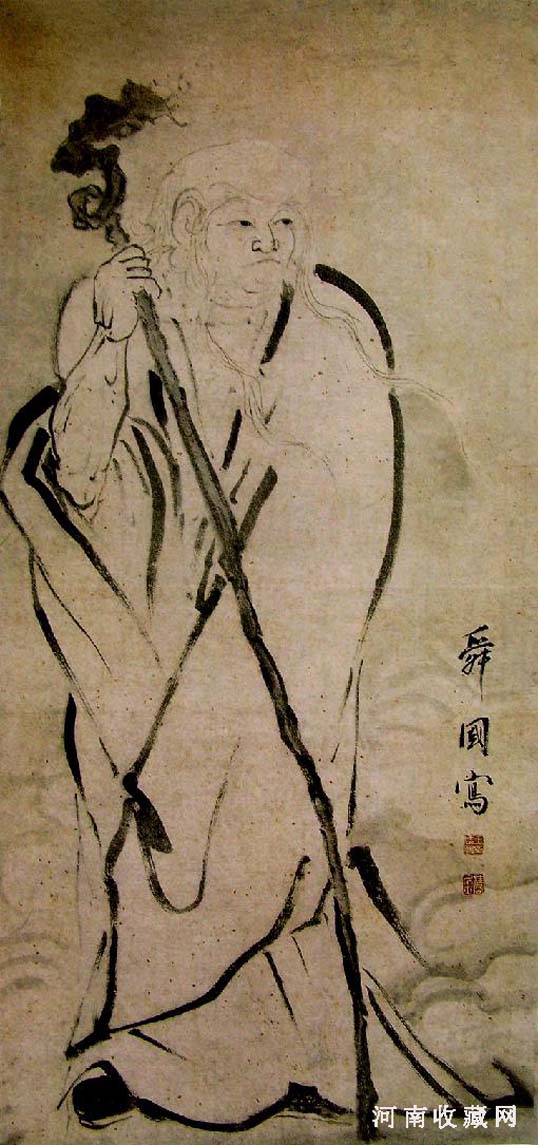 舜國寫
河南收藏网